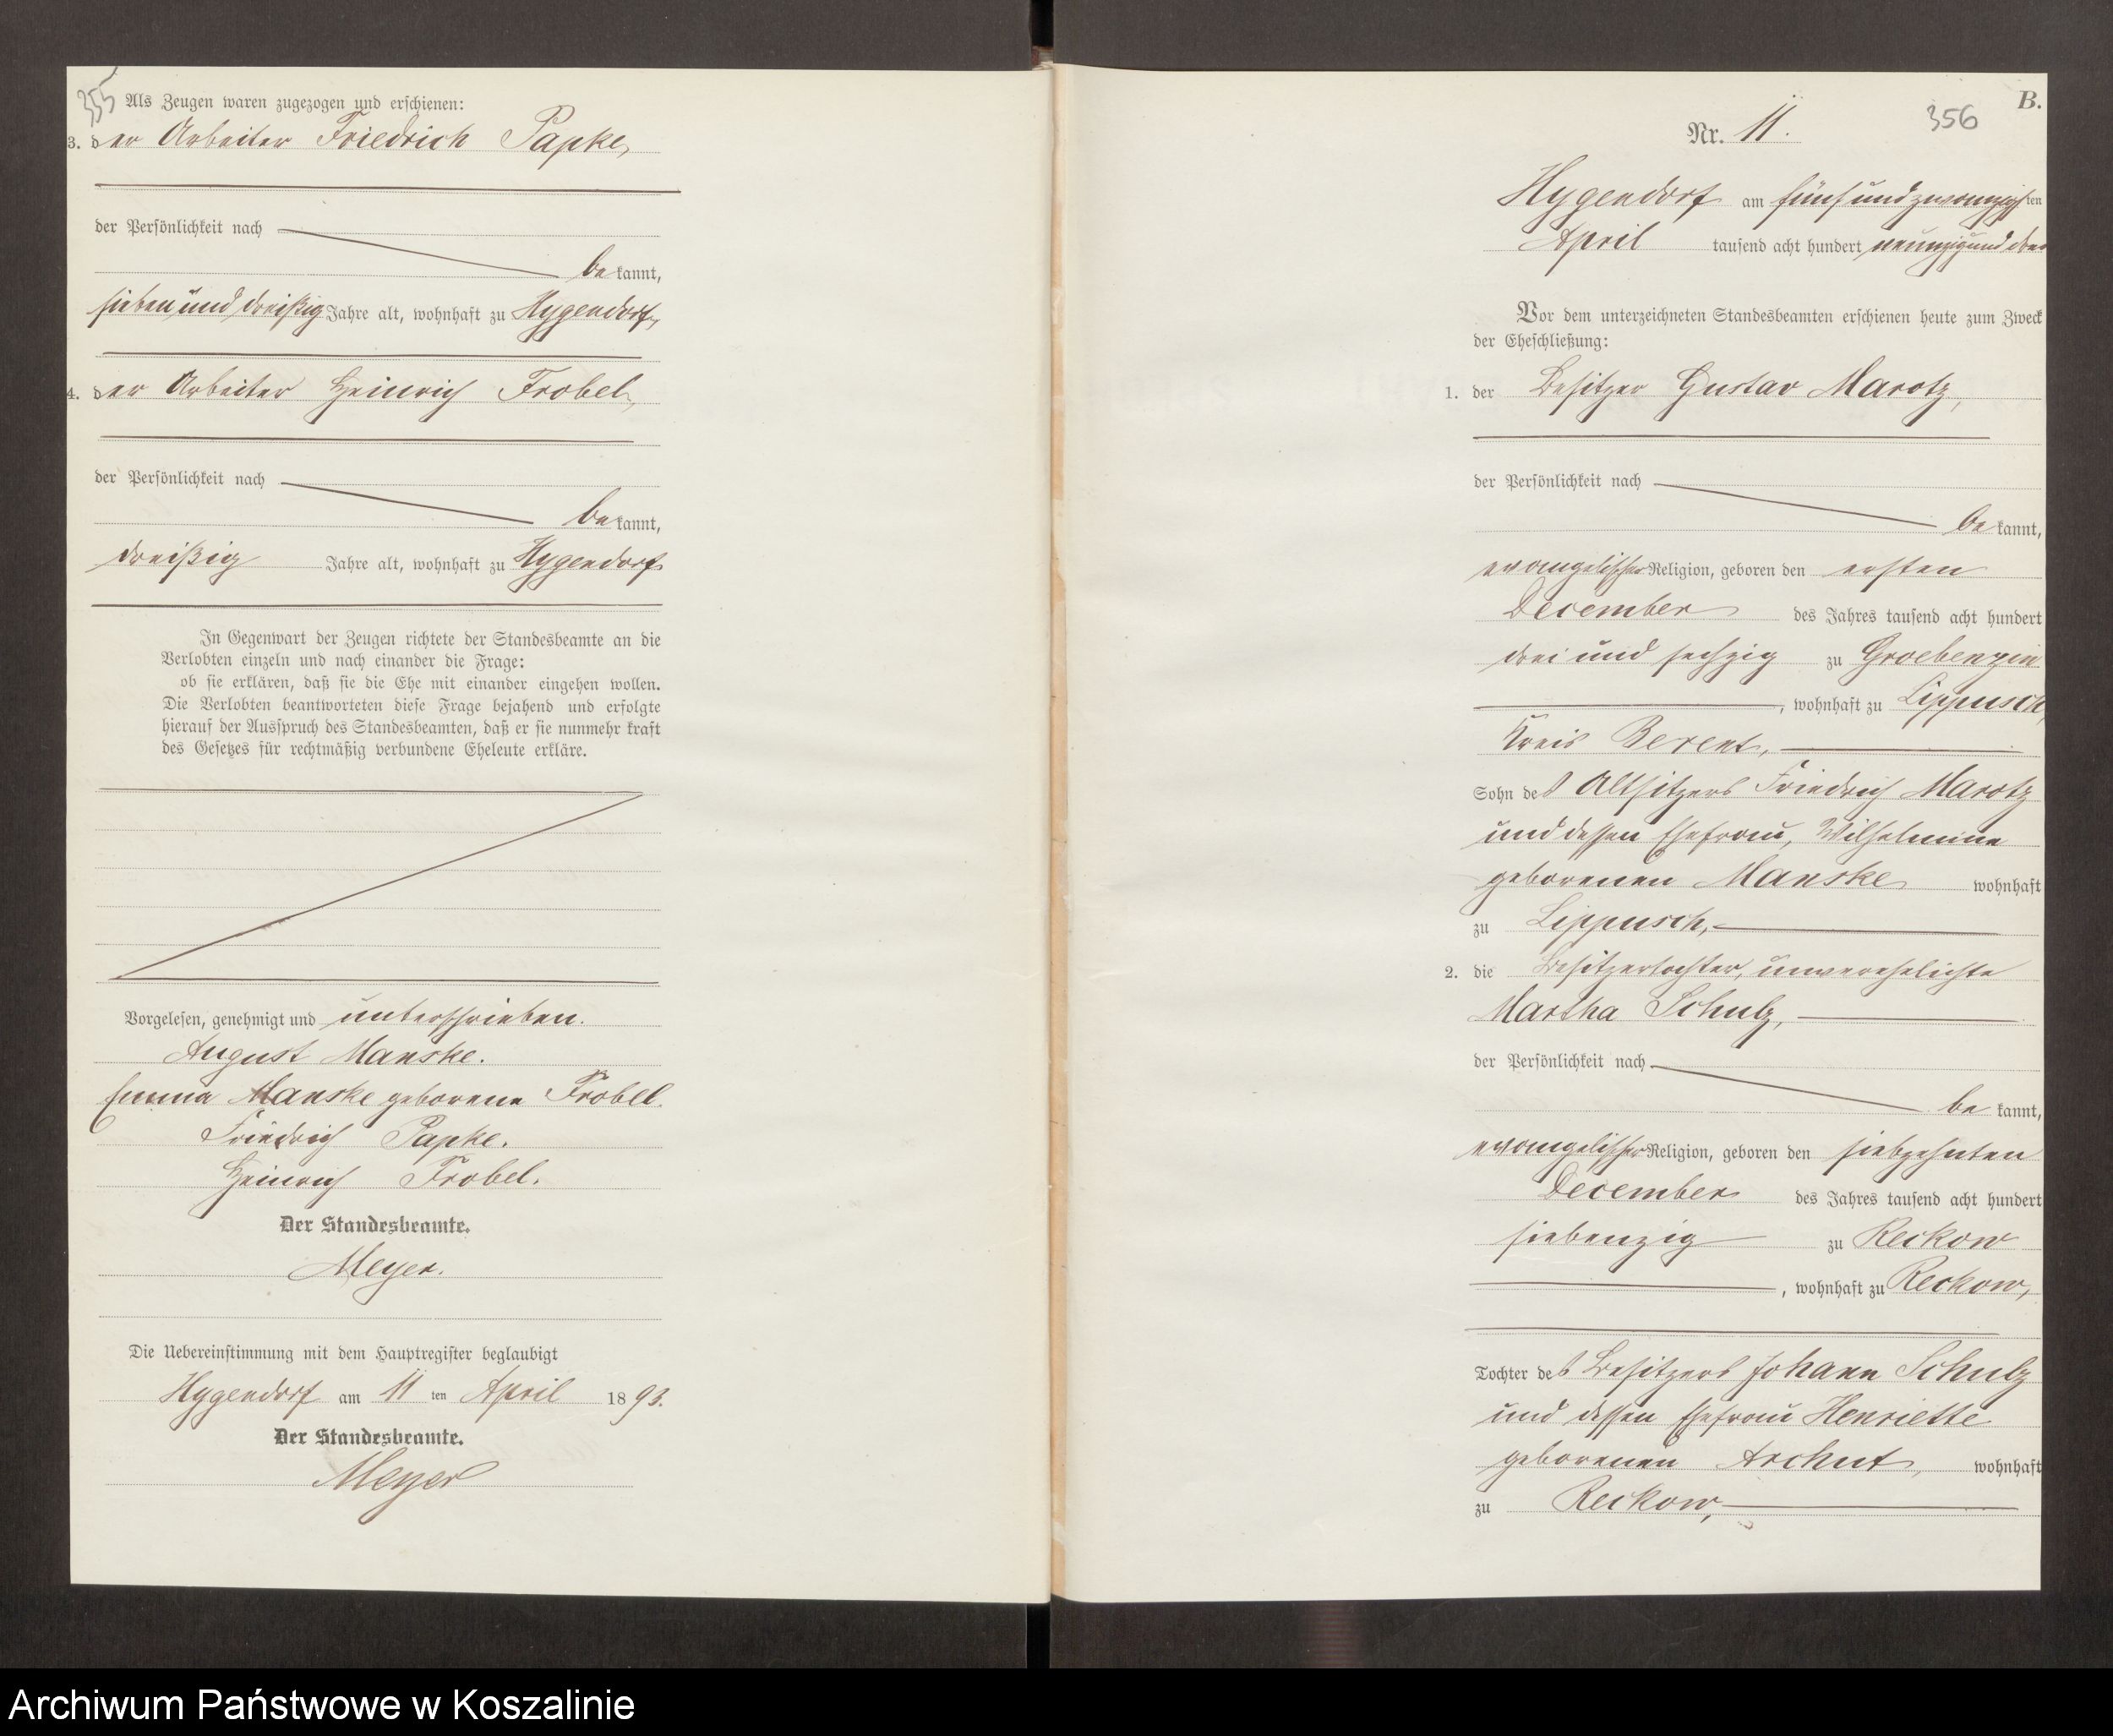 355
Als Zeugen waren zugezogen und erschienen:
3. der Arbeiter Friedrich Papke,
der Persönlichkeit nach
bekannt,
sieben und dreißig Jahre alt, wohnhaft zu Hygendorf,
4. der Arbeiter Heinrich Frobel,
der Persönlichkeit nach
bekannt,
dreißig Jahre alt, wohnhaft zu Hygendorf
In Gegenwart der Zeugen richtete der Standesbeamte an die
Verlobten einzeln und nach einander die Frage:
ob sie erklären, daß sie die Ehe mit einander eingehen wollen.
Die Verlobten beantworteten diese Frage bejahend und erfolgte
hierauf der Ausspruch des Standesbeamten, daß er sie nunmehr kraft
des Gesetzes für rechtmäßig verbundene Eheleute erkläre.
Vorgelesen, genehmigt und unterschrieben.
August Manske.
Emma Manske geborene Frobel.
Friedrich Papke.
Heinrich Frobel.
Der Standesbeamte.
Meyer.
Die Uebereinstimmung mit dem Hauptregister beglaubigt
Hygendorf am 11ten April 1893.
Der Standesbeamte.
Meyer
B.
356
Nr. 11.
Hygendorf am fünfundzwanzigsten
April tausend acht hundert neunzig und drei
Vor dem unterzeichneten Standesbeamten erschienen heute zum Zweck
der Eheschließung:
1. der Besitzer Gustav Marotz,
der Persönlichkeit nach
bekannt,
evangelischer Religion, geboren den ersten
December des Jahres tausend acht hundert
drei und sechzig zu Groebenzin
, wohnhaft zu Lippusch,
Kreis Berent,
Sohn des Altsitzers Friedrich Marotz
und dessen Ehefrau, Wilhelmine
geborenen Manske wohnhaft
zu Lippusch,
2. die Besitzertochter, unverehelichte
Martha Schulz,
der Persönlichkeit nach
bekannt,
evangelischer Religion, geboren den siebzehnten
December des Jahres tausend acht hundert
siebenzig zu Reckow
, wohnhaft zu Reckow,
Tochter des Besitzers Johann Schulz
und dessen Ehefrau Henriette
geborenen Archut, wohnhaft
zu Reckow,
Archiwum Państwowe w Koszalinie